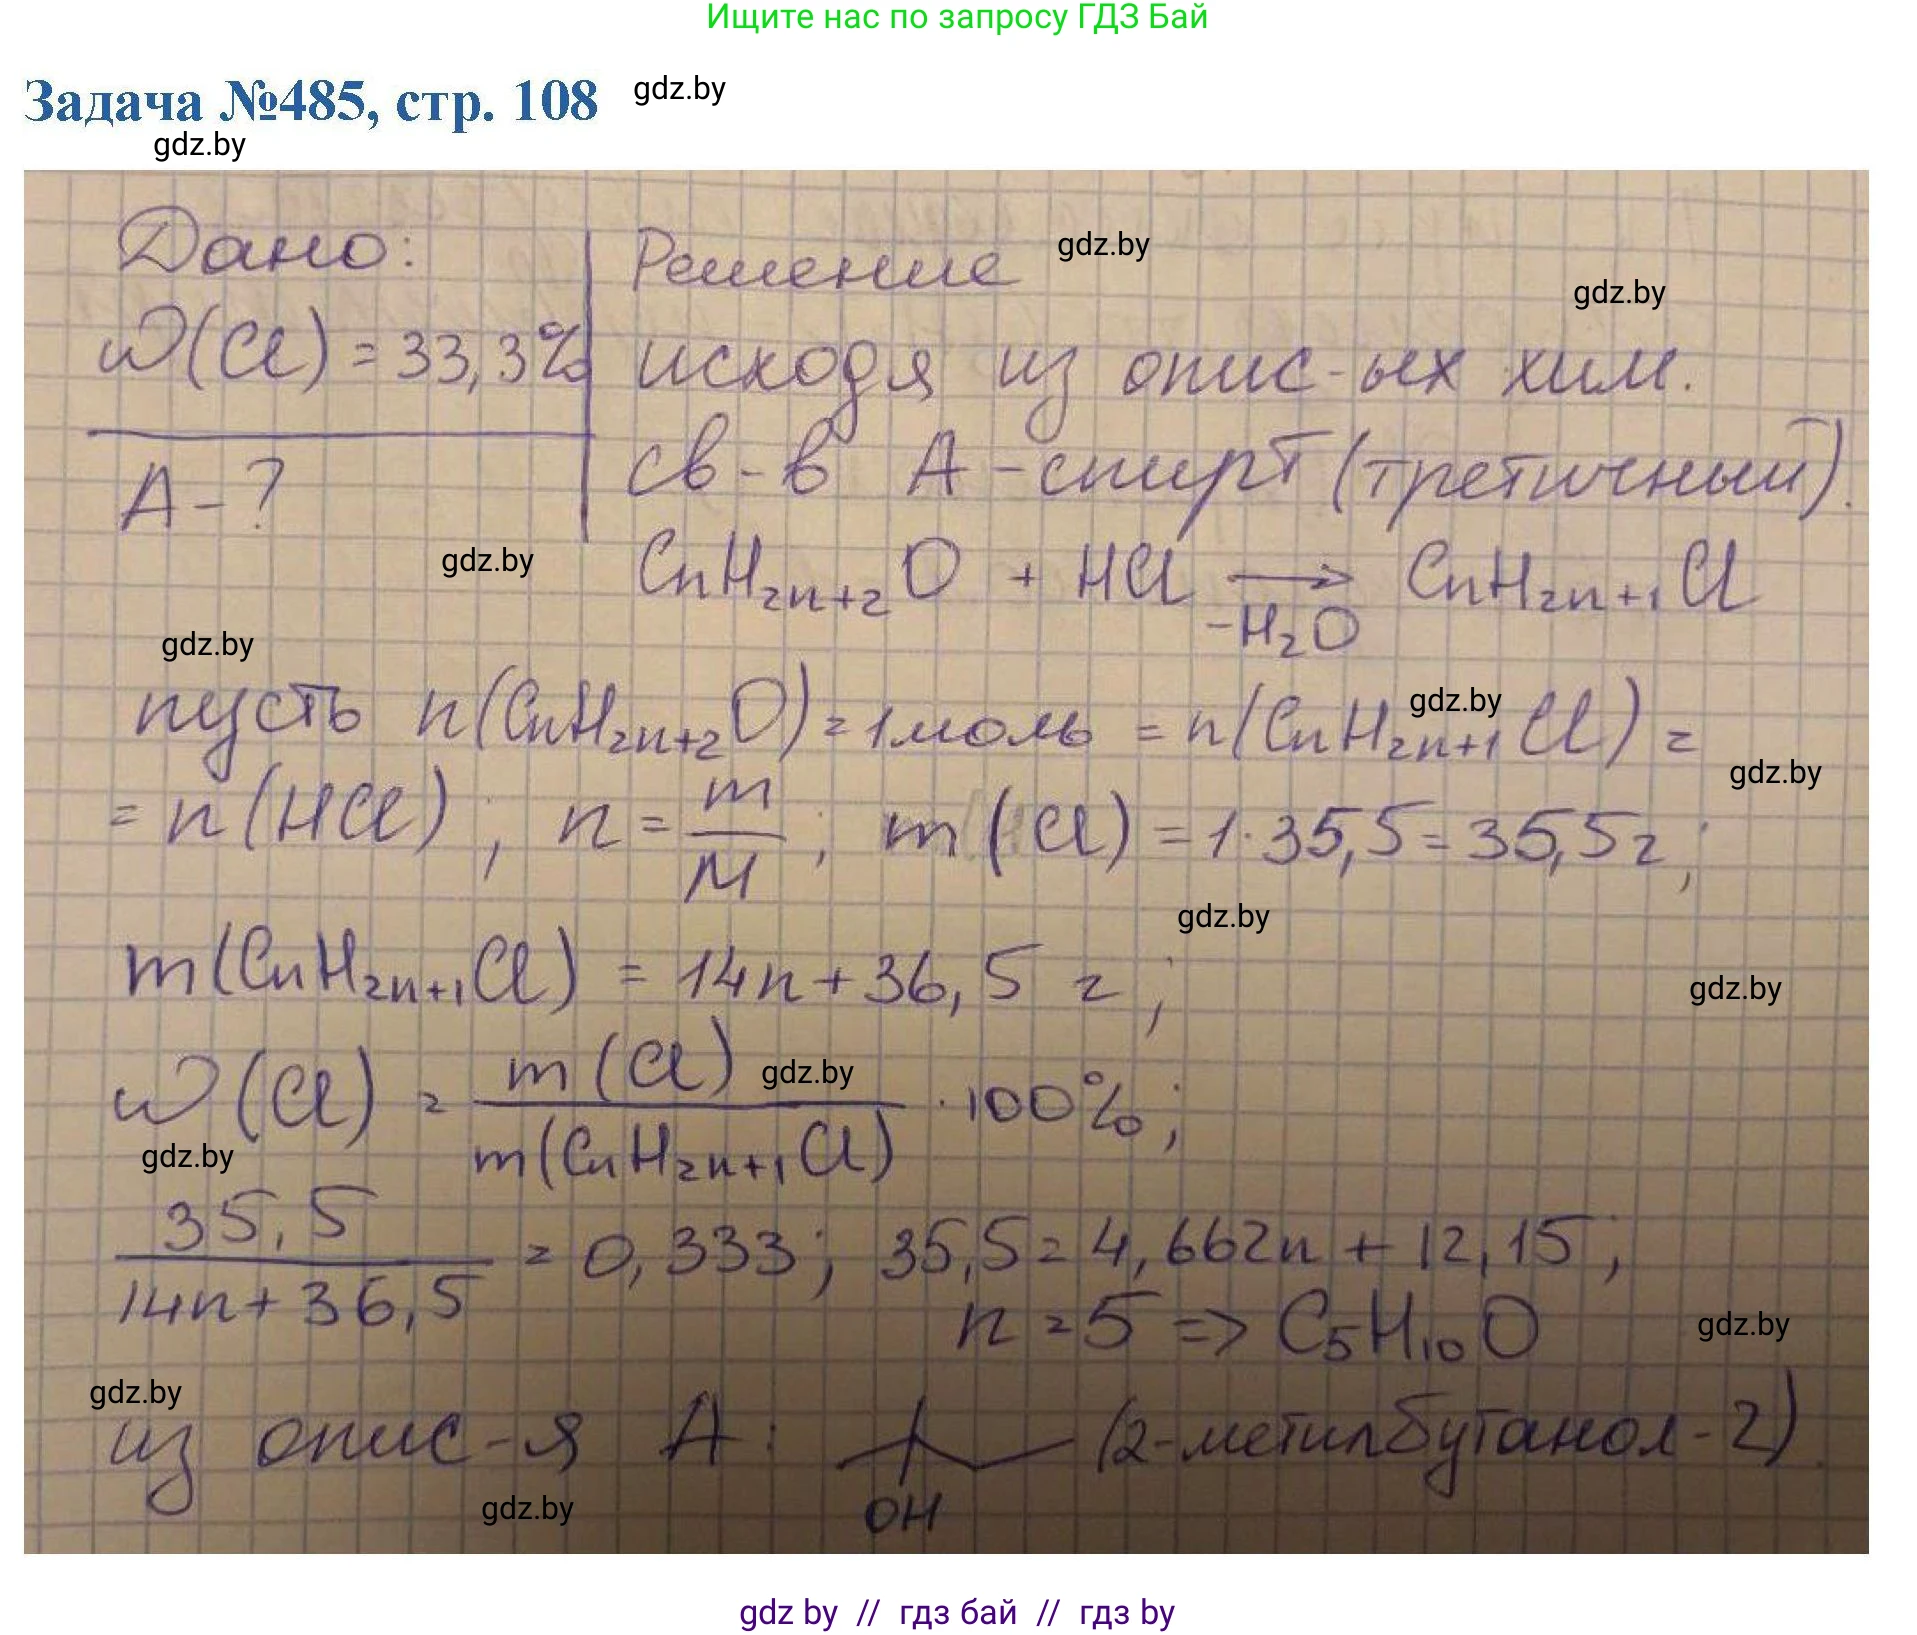 Ищите нас по запросу ГДЗ Бай
Задача №485, стр. 108 gdz.by
gdz.by
Дано:
Решение gdz.by
gdz.by
ω(Cl) = 33,3%
исходя из опис-ых хим.
св-в А - спирт (третичный).
А - ?
gdz.by
CnH2n+2O + HCl → CnH2n+1Cl
-H2O
gdz.by
gdz.by
пусть n(CnH2n+2O) = 1моль = n(CnH2n+1Cl) =
gdz.by
= n(HCl) ; n = m/M ; m(Cl) = 1·35,5 = 35,5г ;
gdz.by
m(CnH2n+1Cl) = 14n + 36,5 г ;
gdz.by
ω(Cl) = m(Cl)/m(CnH2n+1Cl) · 100% ;
gdz.by
gdz.by
35,5/14n + 36,5 = 0,333 ; 35,5 = 4,662n + 12,15 ;
n = 5 => C5H10O
gdz.by
gdz.by
из опис-я А : OH (2-метилбутанол-2).
gdz.by
gdz by // гдз бай // гдз by